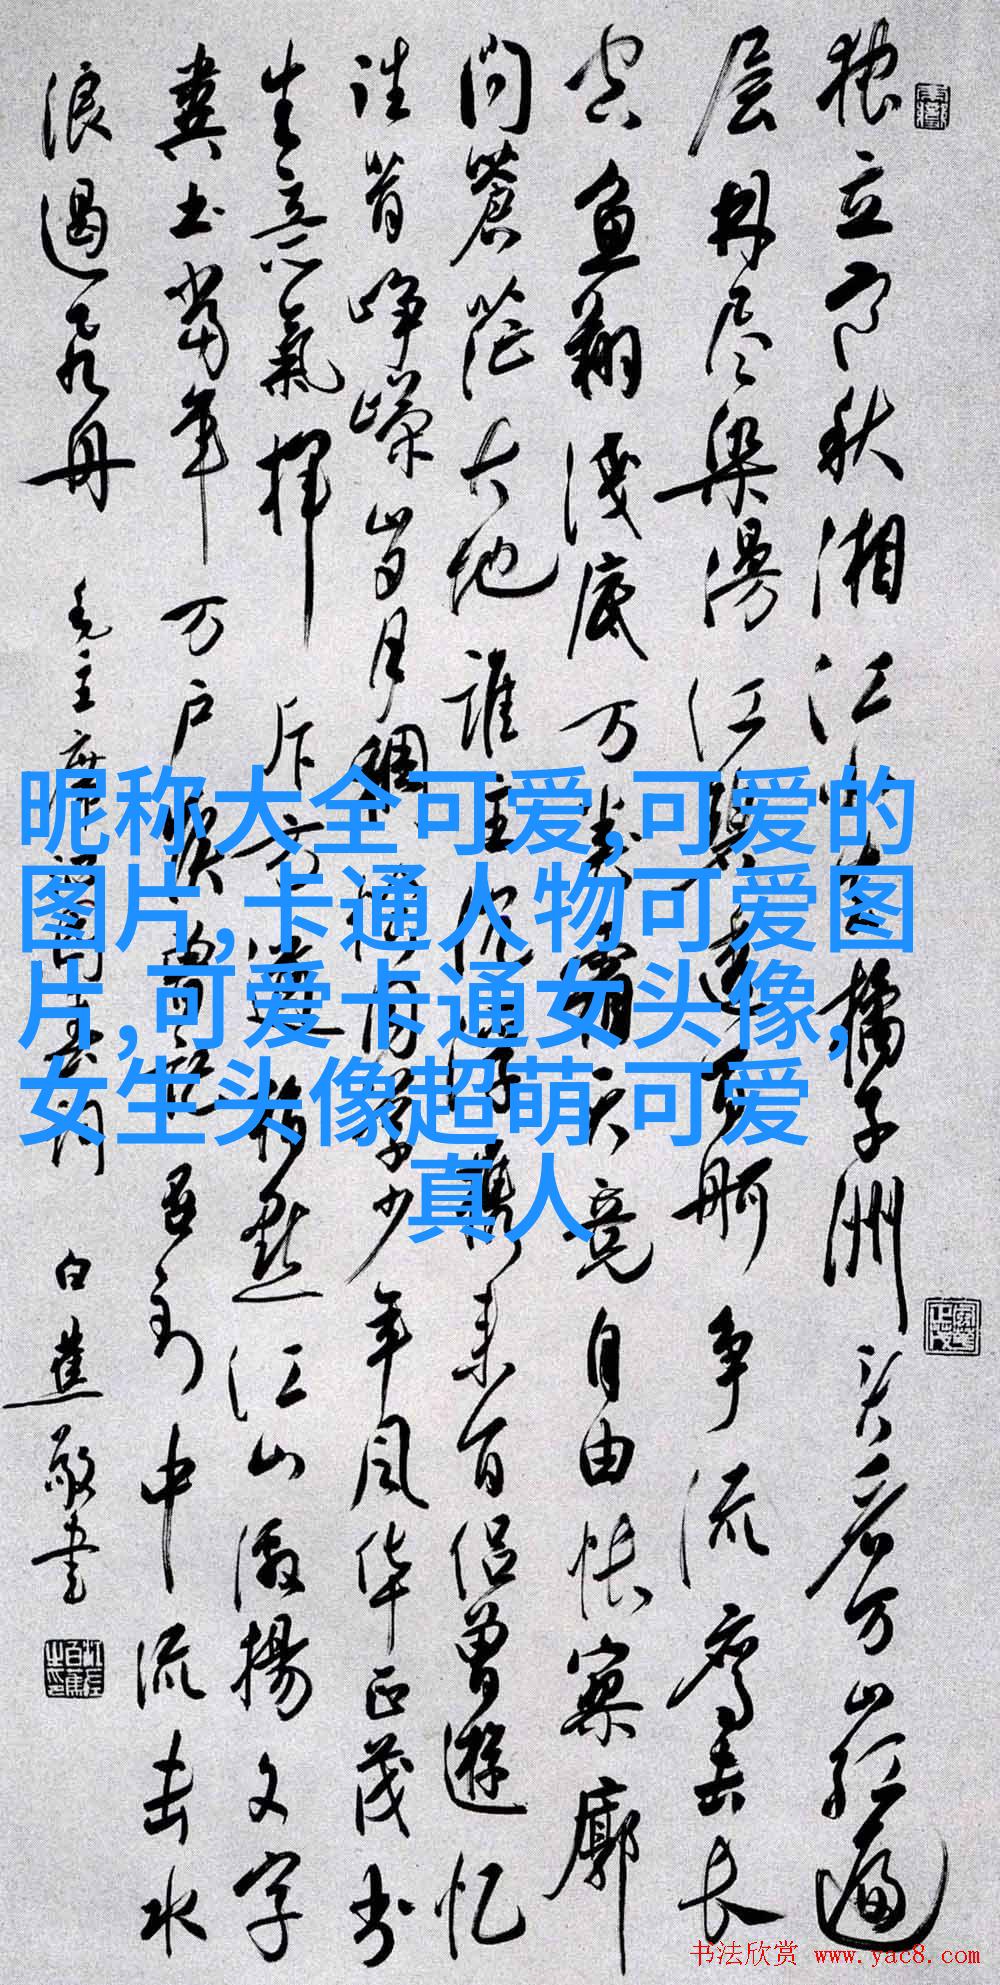 独立寒秋湘江北去橘子洲头看万山红遍
层林尽染漫江碧透百舸争流鹰击长
空鱼翔浅底万类霜天竞自由怅寥廓
问蒼茫大地誰主沉浮携来百侣曾遊忆
往昔峥嵘岁月稠恰同学少年风华正茂书
生意氣挥斥方遒指点江山激揚文字
粪土当年万户侯曾记否到中流击水
浪遏飞舟 毛主席词 白蕉敬书
昵称大全可爱,可爱的
图片,卡通人物可爱图
片,可爱卡通女头像,
女生头像超萌 可爱
真人
书法欣赏 www.yac8.com